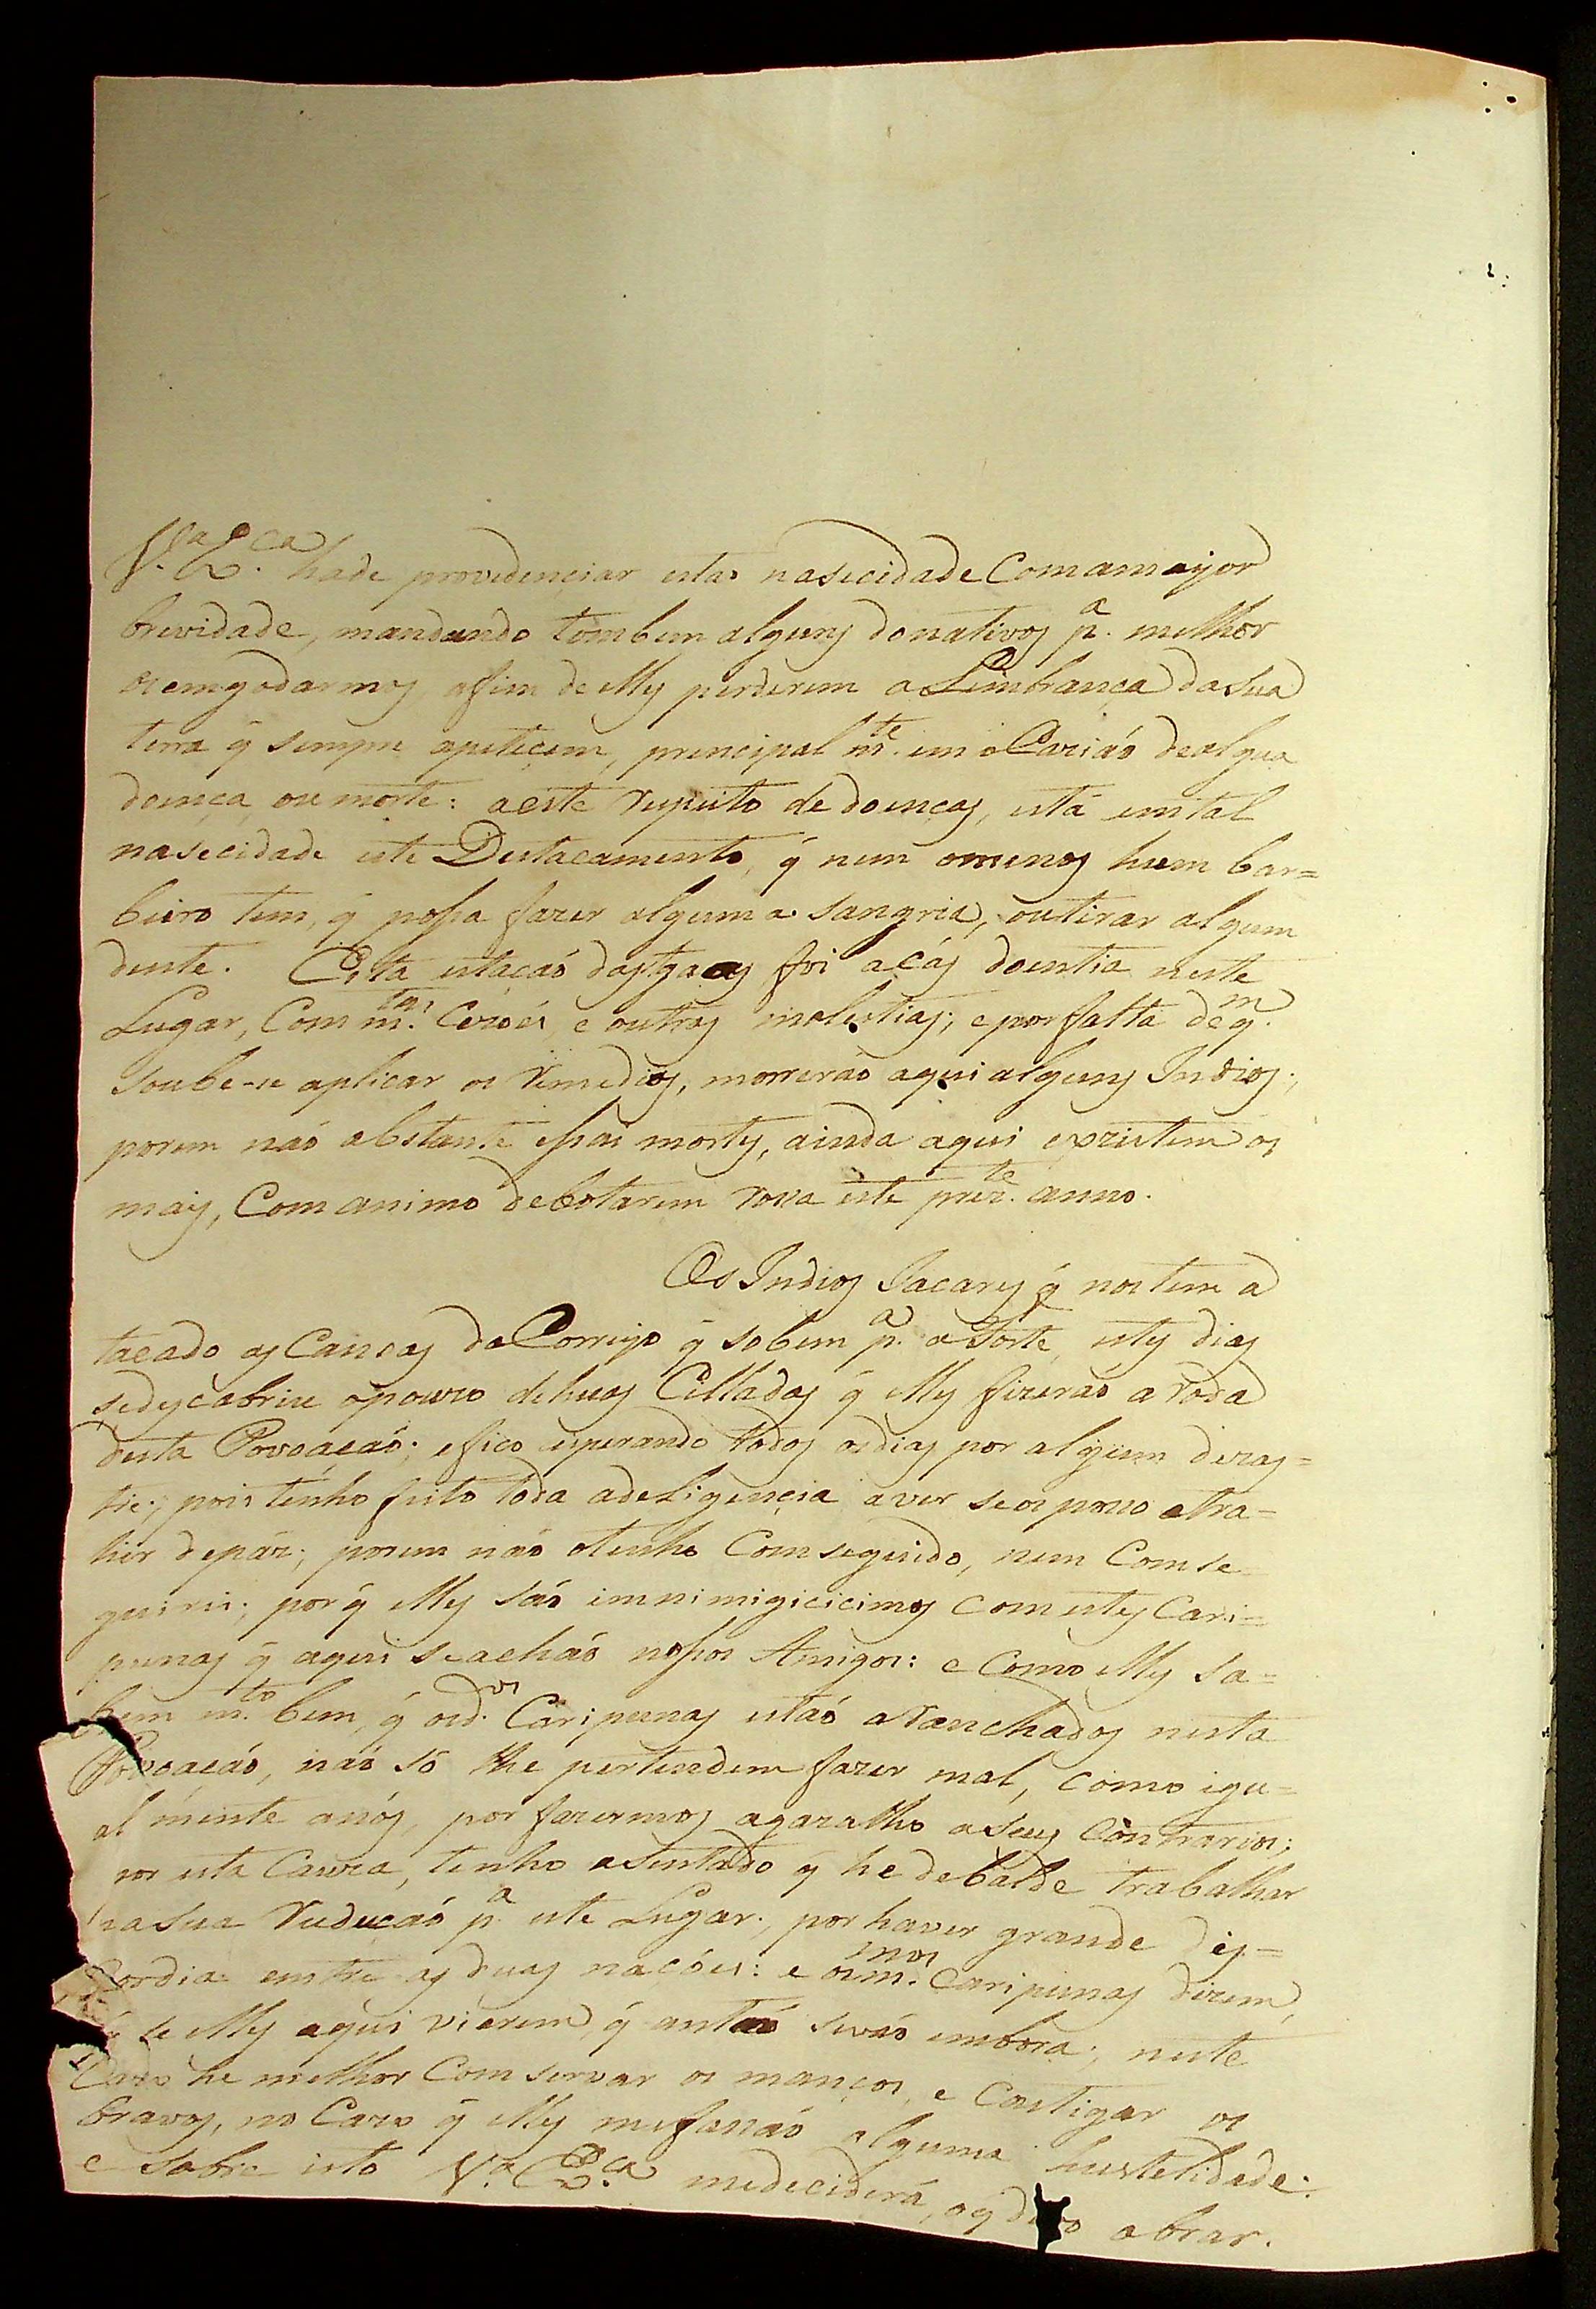 V.ª Ex.ca hade providençiar estas nasecidade Comamayor
brividade, mandando tombem alguns donativos p.ª milhor
os emgodarmos, afim de elles perderem a Limbrança dasua
terra q̃ sempre apiteçem, prencipal m.te em oCazião dealgua
doença, ou morte: aeste respeito de doenças, está emtal
nasecidade este Destacamento, q̃ nem omenos hum bar=
beiro tem, q̃ possa fazer alguma sangria, outirar algum
dente. Esta estação dasagoas foi açás doentia neste
Lugar, Com m.tas Cezóes, e outras molestias; eporfalta deq.m
soube-se aplicar os remedios, morrerão aqui alguns Indios;
porem não obstante essas mortes, ainda aqui epzistem os
mais, Com animo debotarem rossa este prez.te anno.
Os Indios Jacares q̃ nos tem a
tacado as Canoas doCorreyo q̃ sobem p.ª o Forte, estes dias
sedescobriu opouzo dehuas Cilladas q̃ elles fizerão a roda
desta Povoação; efico esperando todos osdias por algum dezas=
tre; pois tenho feito toda adeLigençia aver seos posso atra=
hir depáz; porem não otenho Comseguido, nem Comse
guirei; porq̃ elles são imnimigicicimos Comestes Cari=
punas q̃ aqui seachão nossos Amigos: e Como elles sa=
bem m.to bem, q̃ osd.os Caripunas estão aRanchados nesta
Povoação, não só lhe pertendem fazer mal, Como igu=
al mente anós, por fazermos agazalho aseus Contrarios;
por esta Cauza, tenho asentado q̃ he debalde trabalhar
nasua Redução p.ª este Lugar, por haver grande dis=
Cordia entre as duas naçóes: e osm.mos Caripunas dizem,
q̃ se elles aqui vierem, q̃ antão sevão embora; neste
Cazo he melhor Comservar os manços, e Castigar os
bravos, no Cazo q̃ elles mefação alguma hustelidade:
e sobre isto V.ª Ex.ca medeciderá, oq̃ devo obrar.